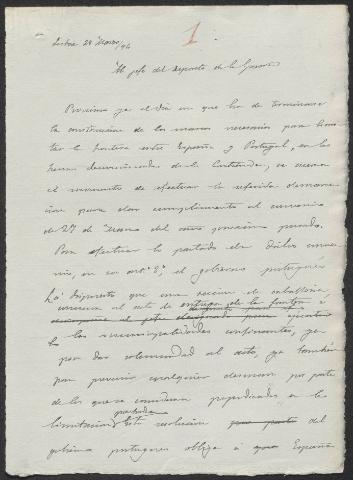 Lisboa 24 Marzo/94
1
Al jefe del Deposito de la Guerra
Proximo ya el dia en que ha de terminarse
la construccion de los marcos necesarios para limi-
tar la frontera entre España y Portugal, en los
terrenos de la Contienda, se acerca
el momento de efectuar la referida demarca-
cion para dar cumplimiento al convenio
de 27 de Marzo del año proximo pasado.
Para efectuar lo pactado en dicho conve-
nio, en su artº 2º, el gobierno portugues
ha dispuesto que una seccion de caballeria
concurra al acto de entrega de la frontera á
las
por dar solemnidad al acto, ya tambien
para prevenir cualquier desman por parte
de los que se consideran perjudicados en la
limitacion pactada. Esta resolucion del
gobierno portugues obliga á España